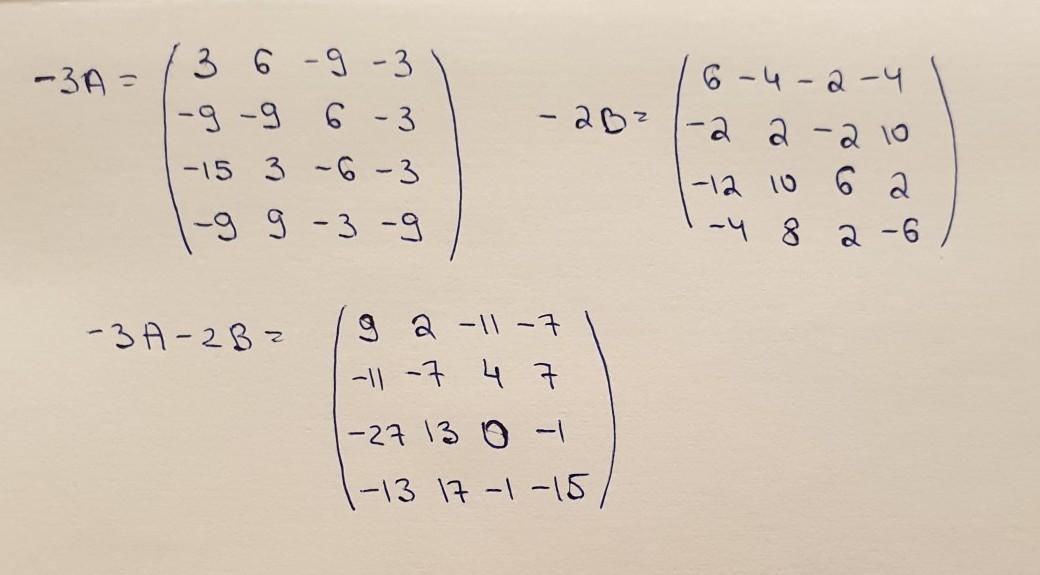 -3A = ( 3 6 -9 -3
-9 -9 6 -3
-15 3 -6 -3
-9 9 -3 -9 )
-2B = ( 6 -4 -2 -4
-2 2 -2 10
-12 10 6 2
-4 8 2 -6 )
-3A-2B = ( 9 2 -11 -7
-11 -7 4 7
-27 13 0 -1
-13 17 -1 -15 )